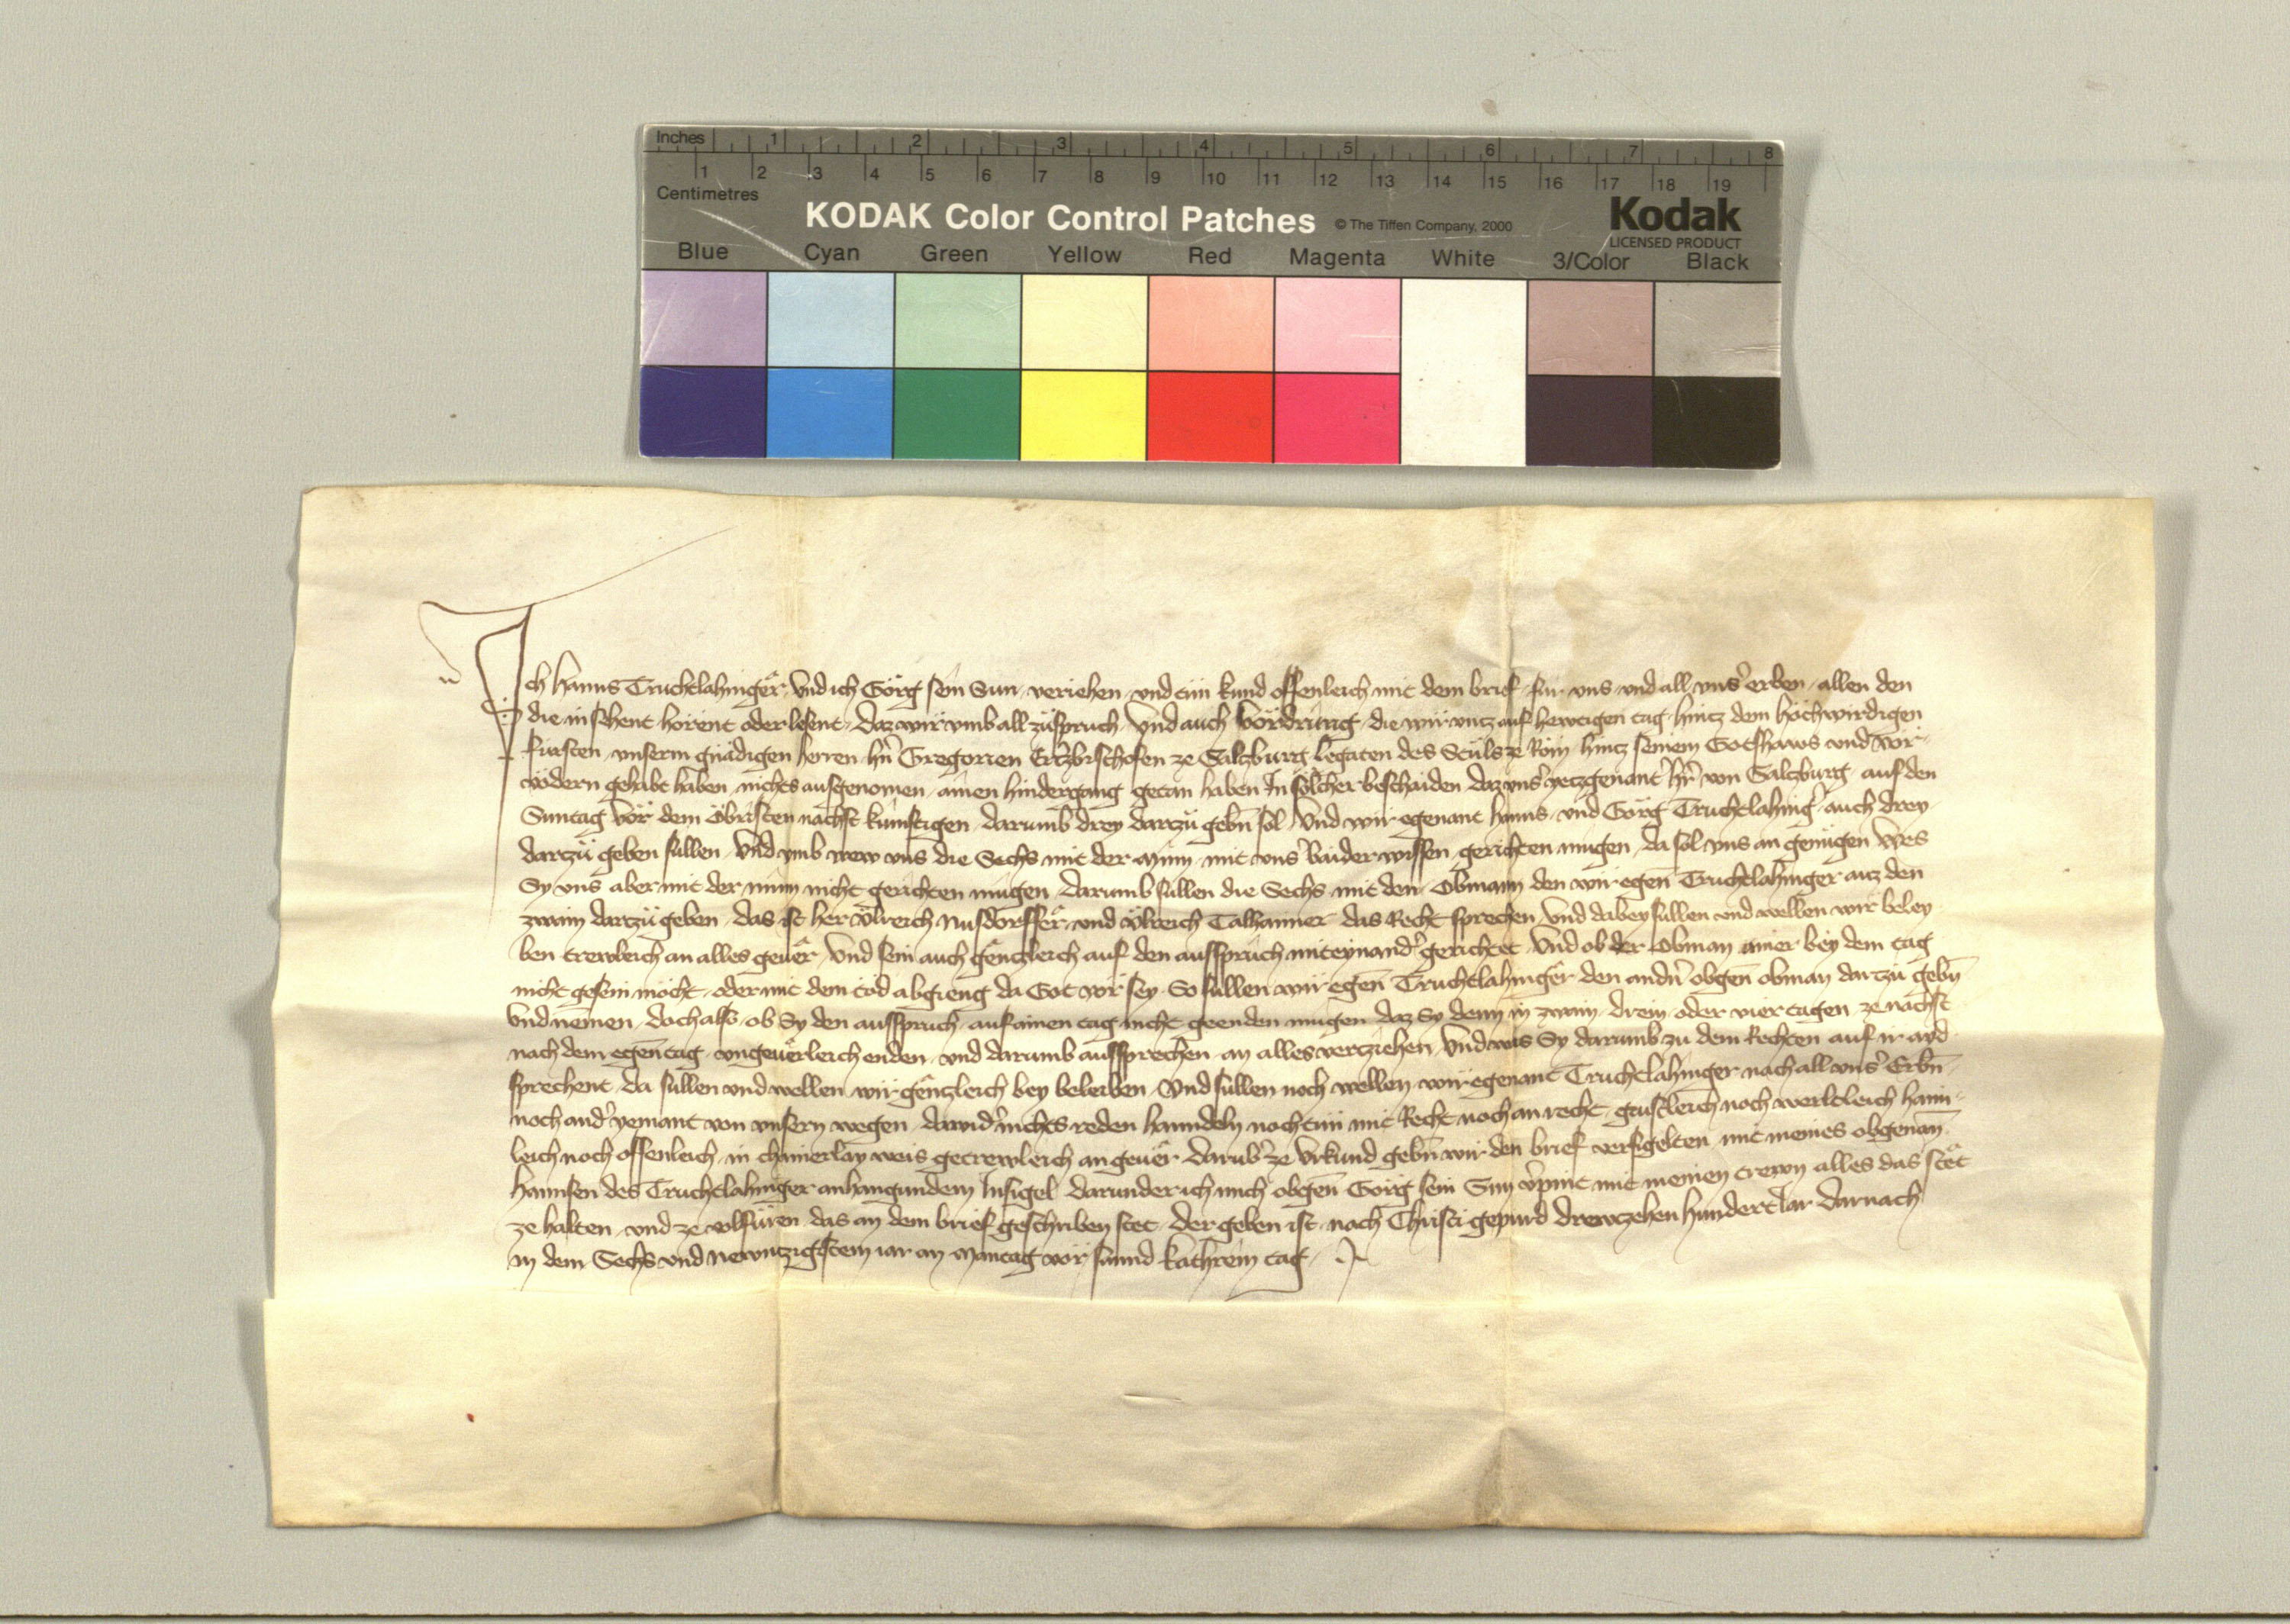 Inches 1 2 3 4 5 6 7 8
1 2 3 4 5 6 7 8 9 10 11 12 13 14 15 16 17 18 19
Centimetres
KODAK Color Control Patches © The Tiffen Company, 2000 Kodak
LICENSED PRODUCT
Blue Cyan Green Yellow Red Magenta White 3/Color Black
Ich Hanns Truchtlahinger vnd ich Görg sein Sun veriehen vnd tün kund offenleich mit dem brief für vns vnd all vnsˀ erben allen den
die in sehent hörent oder lesent daz wir vmb all züspruch vnd auch vördrung die wir vntz auf hewtigen tag hintz dem hochwirdigen
fürsten vnserm gnädigen herren hˀn Gregorien Ertzbischofen ze Saltzburg legaten des Stüls ze Röm hintz seinem Gotshaws vnd vor
vödern gehabt haben nichts ausgenomen ainen hindergang getan haben In sölicher beschaiden daz vnsˀ yetzgenant hˀr von Saltzburg auf den
Suntag vör dem Öbristen nächst künftigen darumb drey dartzü gebn̄ sol Vnd wir egenant Hanns vnd Görg Truchtlahingˀ auch drey
dartzü geben süllen Vnd vmb wew vns die Sechs mit der mynn mit vnsˀ baider wissen gerichten mugen da sol vns an genügen Wes
Sy vns aber mit der minn nicht gerichten mügen darumb süllen die Sechs mit den Obmann den wir egen̄ Truchtlahinger auz den
zwain dartzü geben das ist her Vlreich Nusdorffer vnd Vlreich Talhaimer das Recht sprechen Vnd dabey süllen vnd wellen wir beley
ben trewleich an alles geuer Vnd sein auch gentzleich auf den ausspruch miteynandˀ gerichtet Vnd ob der Obman ainer bey dem tag
nicht gesein möcht oder mit dem tod abgieng da Got vör sey So süllen wir egen̄ Truchtlahinger den andˀn obgen̄ obman dartzü gebn̄
Vnd nemen doch also ob Sy den ausspruch auf ainen tag nicht geenden mugen daz Sy denn in zwain drein oder vier tagen ze nächst
nach dem egen̄ tag vngeuerleich enden vnd darumb aussprechen an alles vertziehen Vnd was Sy darumb zu dem Rechten auf ir ayd
sprechent da süllen vnd wellen wir gentzleich bey beleiben Vnd süllen noch wellen wir egenant Truchtlahinger noch all vnsˀ Erbn̄
noch andˀ yemant von vnsern wegen dawidˀ nichts reden hanndeln noch tün mit Recht noch an recht geistleich noch werltleich haim
leich noch offenleich in chainerlay weis getrewleich an geuer Darubˀ ze Vrkund gebn̄ wir den brief versigelten mit meines obgenan̄
Hannsen des Truchtlahinger anhangundem Insigel darunder ich mich obgen̄ Görg sein Sun vˀpint mit meinen trewn alles das stet
ze halten vnd ze volfüren das an dem brief geschriben stet der geben ist nach Christi gepurd drewtzehen hundert Iar darnach
in dem Sechs vnd Newntzigistem iar an Mantag vör sannd kathrein tag